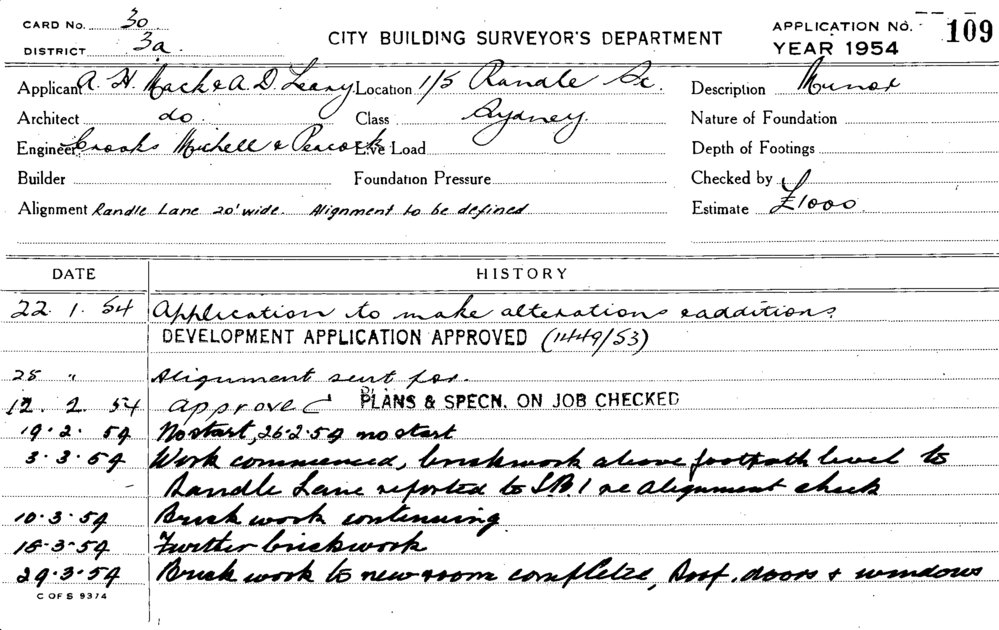 CARD No. 30
DISTRICT 3a.
CITY BUILDING SURVEYOR'S DEPARTMENT
APPLICATION No. 109
YEAR 1954
Applicant A. H. Mack & A. D. Leary. Location 1/5 Randle St. Description Minor
Architect do Class Sydney. Nature of Foundation
Engineer Crooks Michell & Peacock Live Load Depth of Footings
Builder Foundation Pressure Checked by
Alignment Randle Lane 20' wide. Alignment to be defined Estimate £1000.
DATE HISTORY
22. 1. 54 Application to make alterations & additions.
DEVELOPMENT APPLICATION APPROVED (1449/53)
25 " Alignment sent for.
12. 2. 54 Approved PLANS & SPECN. ON JOB CHECKED
19. 2. 54 No start, 26.2.54 no start
3. 3. 54 Work commenced, brickwork above footpath level to
Randle Lane reported to S.B.1 re alignment check
10. 3. 54 Brick work continuing
18-3-54 Further brickwork
29. 3. 54 Brick work to new room complete, Roof, doors & windows
C OF S 9374